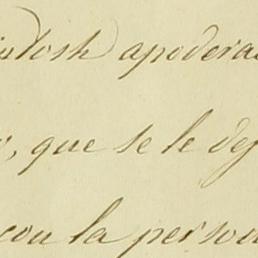 intosh apodera
, que se le de
con la person